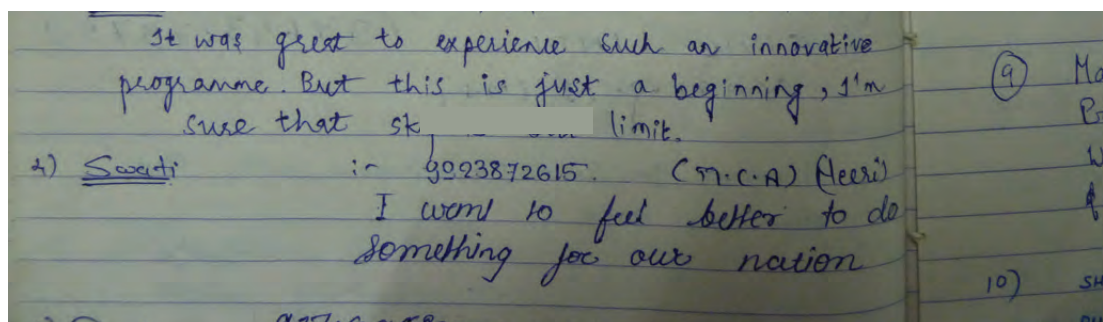 It was great to experience such an innovative
programme. But this is just a beginning, I'm
sure that sk limit.
2) Swati :- 9023872615. (M.C.A)
I want to feel better to do
something for our nation
9 Ma
10) SH